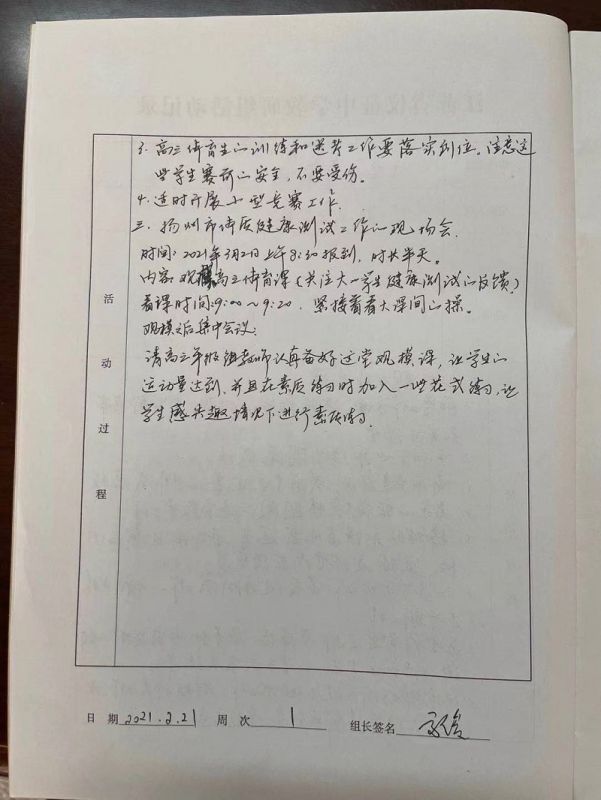 3. 高三体育生的训练和送考工作要落实到位。注意这
些学生赛前的安全，不要受伤。
4. 适时开展小型竞赛工作.
三. 扬州市体质健康测试工作的现场会.
时间: 2021年3月2日上午8:30报到, 时长半天。
内容: 观摩高三体育课(关注大一学生健康测试的反馈)
看课时间:9:00～9:20. 紧接着看大课间的操。
观模之后集中会议.
请高三年级组教师认真备好这堂观模课, 让学生的
运动量达到. 并且在素质练习时加入一些花式练习, 让
学生感兴趣情况下进行素质练习.
活动过程
日 期 2021.2.21 周 次 1 组长签名